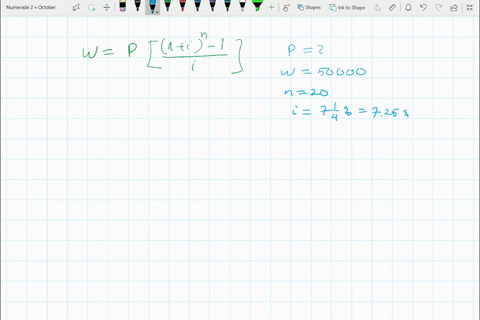 Numerade 2 » October
Shapes
Ink to Shape
W = P [ ((1+i)^n - 1) / i ]
P = ?
W = 50000
n = 20
i = 7 1/4 % = 7.25 %